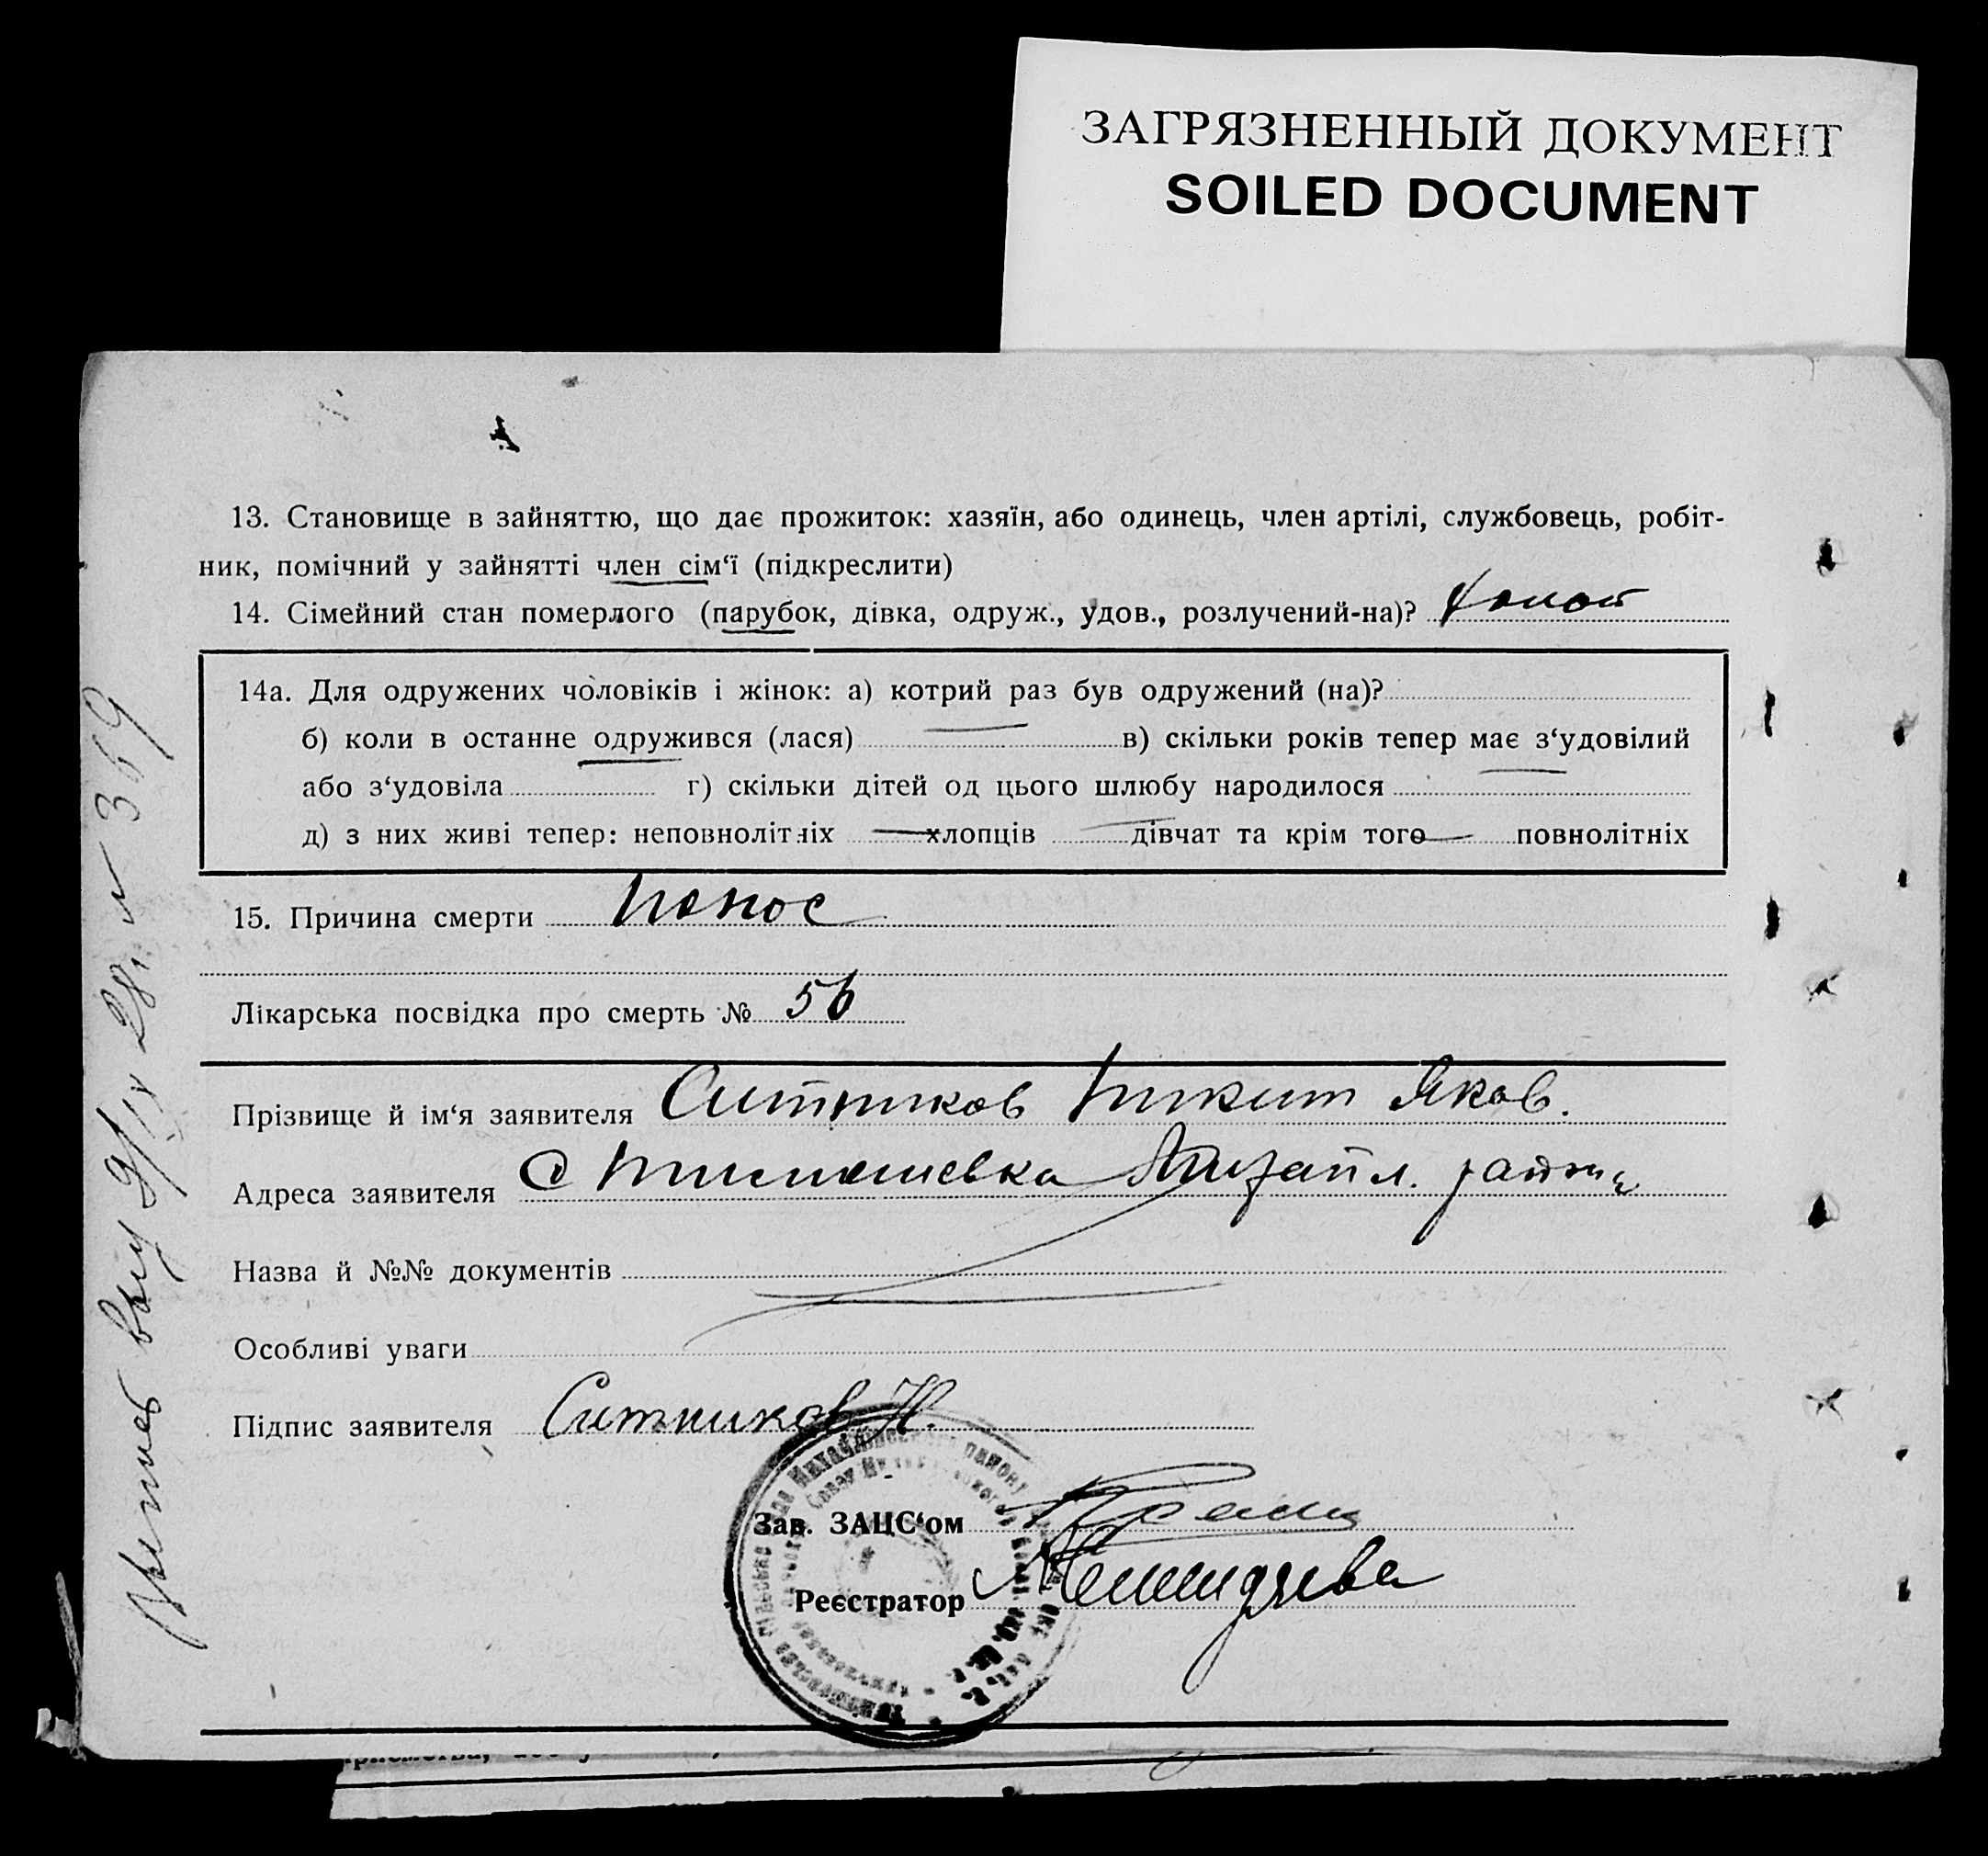 ЗАГРЯЗНЕННЫЙ ДОКУМЕНТ
SOILED DOCUMENT
13. Становище в зайняттю, що дає прожиток: хазяїн, або одинець, член артілі, службовець, робіт-
ник, помічний у зайнятті член сім‘ї (підкреслити)
14. Сімейний стан померлого (парубок, дівка, одруж., удов., розлучений-на)? холост
14а. Для одружених чоловіків і жінок: а) котрий раз був одружений (на)?
б) коли в останне одружився (лася) в) скільки років тепер має з‘удовілий
або з‘удовіла г) скільки дітей од цього шлюбу народилося
д) з них живі тепер: неповнолітніх хлопців дівчат та крім того повнолітніх
15. Причина смерти понос
Лікарська посвідка про смерть № 56
Прізвище й ім‘я заявителя Ситников Никит Яков.
Адреса заявителя с Тимошевка Михайл. района
Назва й №№ документів
Особливі уваги
Підпис заявителя Ситников Н.
Зав. ЗАЦС‘ом
Реєстратор
28 г. № 369